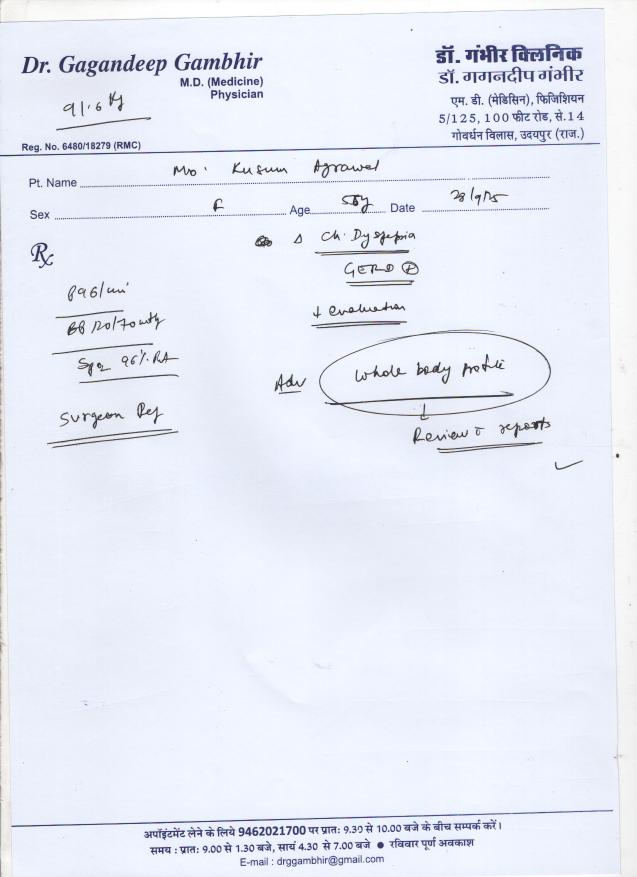 Dr. Gagandeep Gambhir
M.D. (Medicine)
Physician
91.6 Kg
Reg. No. 6480/18279 (RMC)
डॉ. गंभीर क्लिनिक
डॉ. गगनदीप गंभीर
एम. डी. (मेडिसिन), फिजिशियन
5/125, 100 फीट रोड, से.14
गोवर्धन विलास, उदयपुर (राज.)
Pt. Name Kusum Agrawal
Sex F Age Date
Rx
Δ Ch. Dyspepsia
GERD
evaluation
P 96/min
BP 120/70 mmHg
96% RA
Surgeon Ref
Adv Whole body profile
Review c reports
अपॉइंटमेंट लेने के लिये 9462021700 पर प्रातः 9.30 से 10.00 बजे के बीच सम्पर्क करें।
समय : प्रातः 9.00 से 1.30 बजे, सायं 4.30 से 7.00 बजे ● रविवार पूर्ण अवकाश
E-mail : drggambhir@gmail.com